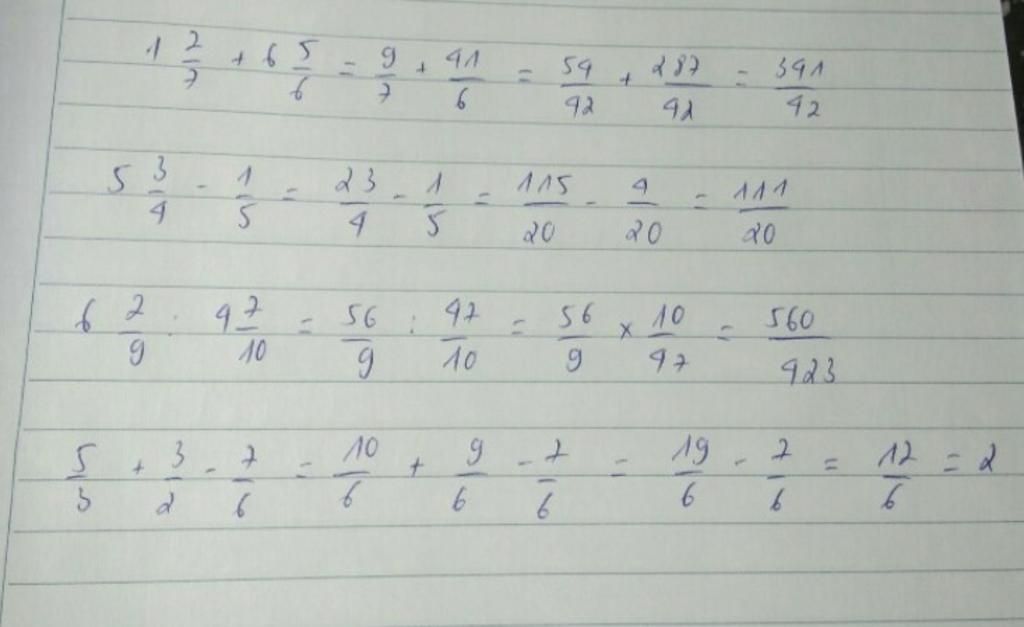 1 2/7 + 6 5/6 = 9/7 + 41/6 = 54/42 + 287/42 = 341/42
5 3/4 - 1/5 = 23/4 - 1/5 = 115/20 - 4/20 = 111/20
6 2/9 : 4 7/10 = 56/9 : 47/10 = 56/9 × 10/47 = 560/423
5/3 + 3/2 - 7/6 = 10/6 + 9/6 - 7/6 = 19/6 - 7/6 = 12/6 = 2